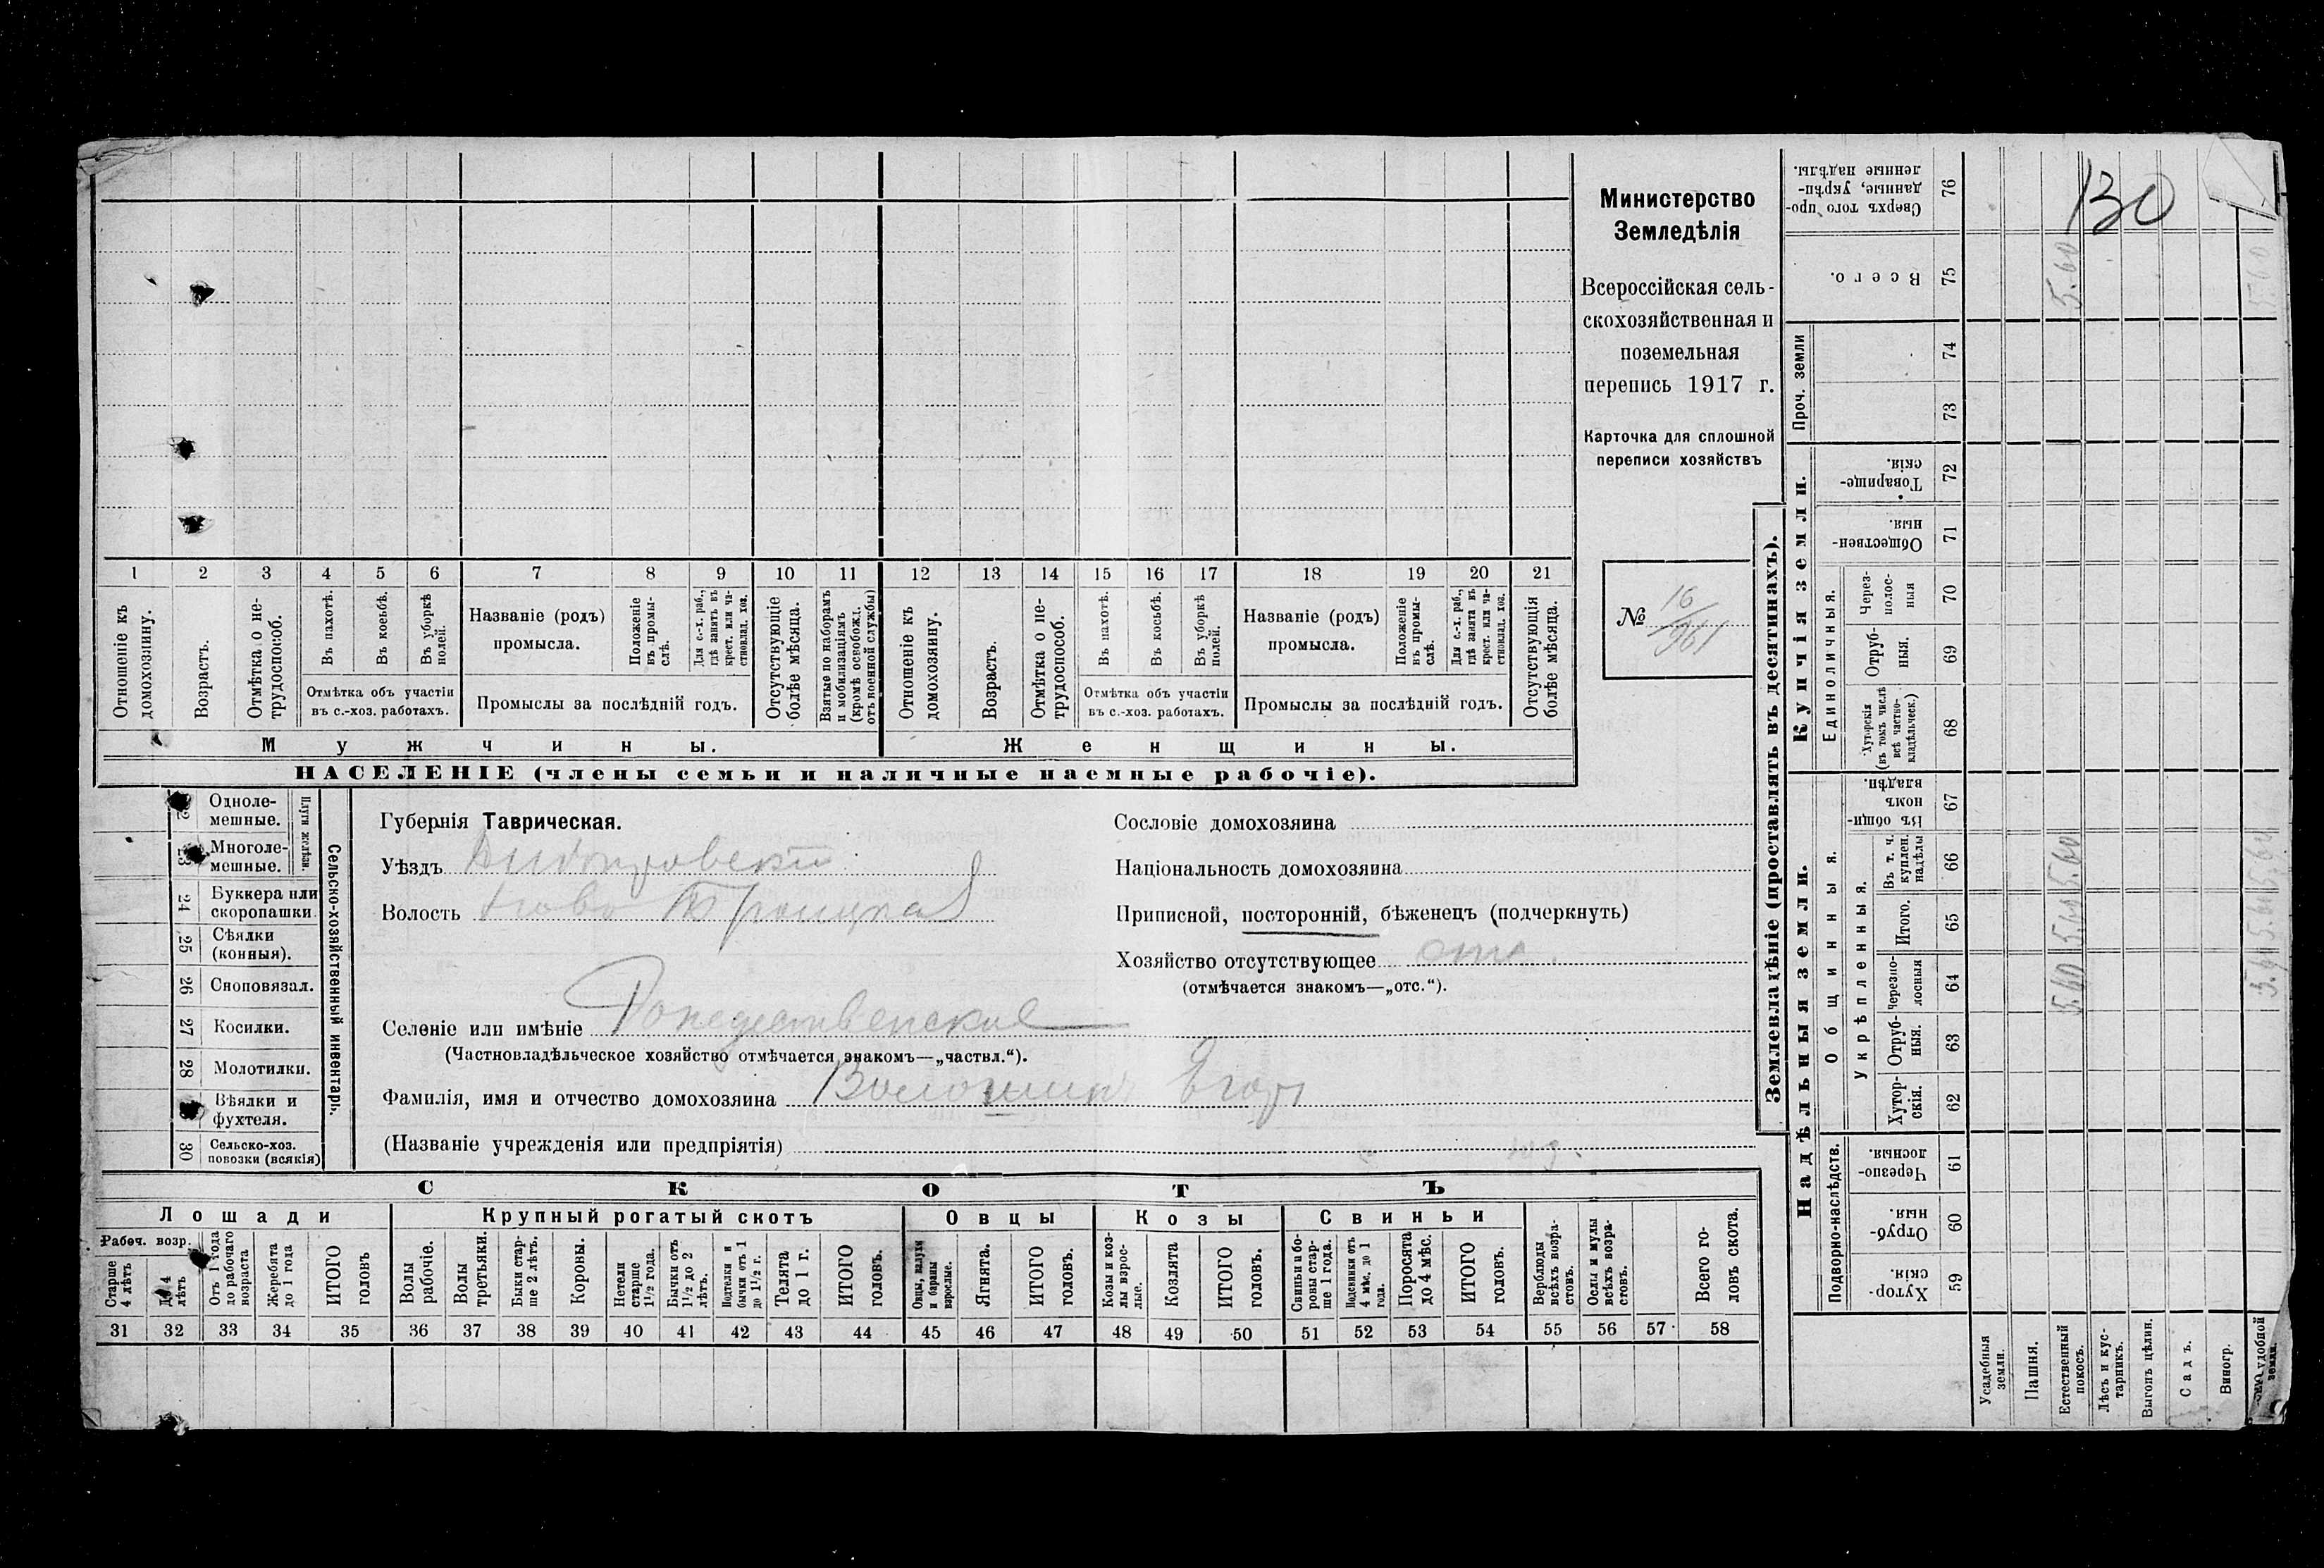 Министерство
Земледѣлія
Всероссійская сель-
скохозяйственная и
поземельная
перепись 1917 г.
Карточка для сплошной
переписи хозяйствъ
№ 16/961
130
1 2 3 4 5 6 7 8 9 10 11 12 13 14 15 16 17 18 19 20 21
Отношеніе къ домохозяину.
Возрастъ.
Отмѣтка о не-трудоспособ.
Въ пахотѣ.
Въ косьбѣ.
Въ уборкѣ полей.
Отмѣтка объ участіи
въ с.-хоз. работахъ.
Названіе (родъ)
промысла.
Положеніе въ промы-слѣ.
Для с.-х. раб., гдѣ занятъ въ крест. или ча-стновлад. хоз.
Промыслы за послѣдній годъ.
Отсутствующіе болѣе мѣсяца.
Взятые по наборамъ и мобилизаціямъ (кромѣ освобожд. отъ военной службы)
Отношеніе къ домохозяину.
Возрастъ.
Отмѣтка о не-трудоспособ.
Въ пахотѣ.
Въ косьбѣ.
Въ уборкѣ полей.
Отмѣтка объ участіи
въ с.-хоз. работахъ.
Названіе (родъ)
промысла.
Положеніе въ промы-слѣ.
Для с.-х. раб., гдѣ занята въ крест. или ча-стновлад. хоз.
Промыслы за послѣдній годъ.
Отсутствующія болѣе мѣсяца.
Мужчины.
Женщины.
НАСЕЛЕНІЕ (члены семьи и наличные наемные рабочіе).
Одноле-мешные.
Многоле-мешные.
Плуги желѣзн.
24 Буккера или скоропашки
25 Сѣялки (конныя).
26 Сноповязал.
27 Косилки.
28 Молотилки.
Вѣялки и фухтеля.
30 Сельско-хоз. повозки (всякія)
Сельско-хозяйственный инвентарь.
Губернія Таврическая.
Уѣздъ Днѣпровскій
Волость Ново Троицкая
Сословіе домохозяина
Національность домохозяина
Приписной, посторонній, бѣженецъ (подчеркнуть)
Хозяйство отсутствующее отс.
(отмѣчается знакомъ—„отс.“).
Селеніе или имѣніе Рождественское
(Частновладѣльческое хозяйство отмѣчается знакомъ—„частвл.“).
Фамилія, имя и отчество домохозяина Волошинъ Егоръ
(Названіе учрежденія или предпріятія)
СКОТЪ
Лошади
Крупный рогатый скотъ
Овцы
Козы
Свиньи
Рабоч. возр.
Старше 4 лѣтъ
До 4 лѣтъ
Отъ 1 года до рабочаго возраста
Жеребята до 1 года
ИТОГО головъ
Волы рабочіе.
Волы третьяки.
Быки стар-ше 2 лѣтъ.
Коровы.
Нетели старше 1½ года.
Бычки отъ 1½ до 2 лѣтъ.
Подтелки и бычки отъ 1 до 1½ г.
Телята до 1 г.
ИТОГО головъ.
Овцы, валухи и бараны взрослые.
Ягнята.
ИТОГО головъ.
Козы и коз-лы взрос-лые.
Козлята
ИТОГО головъ.
Свиньи и бо-ровы стар-ше 1 года.
Подсвинки отъ 4 мѣс. до 1 года.
Поросята до 4 мѣс.
ИТОГО головъ.
Верблюды всѣхъ возра-стовъ.
Ослы и мулы всѣхъ возра-стовъ.
Всего го-ловъ скота.
31 32 33 34 35 36 37 38 39 40 41 42 43 44 45 46 47 48 49 50 51 52 53 54 55 56 57 58
Землевладѣніе (проставлять въ десятинахъ).
Надѣльныя земли.
Купчія земли.
Проч. земли
Подворно-наслѣдств.
Общинныя.
Укрѣпленныя.
Единоличныя.
59 Хутор-скія.
60 Отруб-ныя.
61 Черезпо-лосныя.
62 Хутор-скія.
63 Отруб-ныя.
64 Черезпо-лосныя
65 Итого.
66 Въ т. ч. куплен. надѣлы
67 Въ общин-номъ владѣн.
68 Хуторскія (въ томъ числѣ всѣ частно-владѣльческ.)
69 Отруб-ныя.
70 Через-полос-ныя
71 Обществен-ныя.
72 Товарище-скія.
73
74
75 Всего.
76 Сверхъ того про-данные, укрѣп-ленные надѣлы.
Усадебныя земли.
Пашня.
Естественный покосъ.
Лѣсъ и кус-тарникъ.
Выгонъ цѣлин.
Садъ.
Виногр.
удобной земли.
5.60 5.60 5.60 5.60
5.60 5.60 5.60 5.60